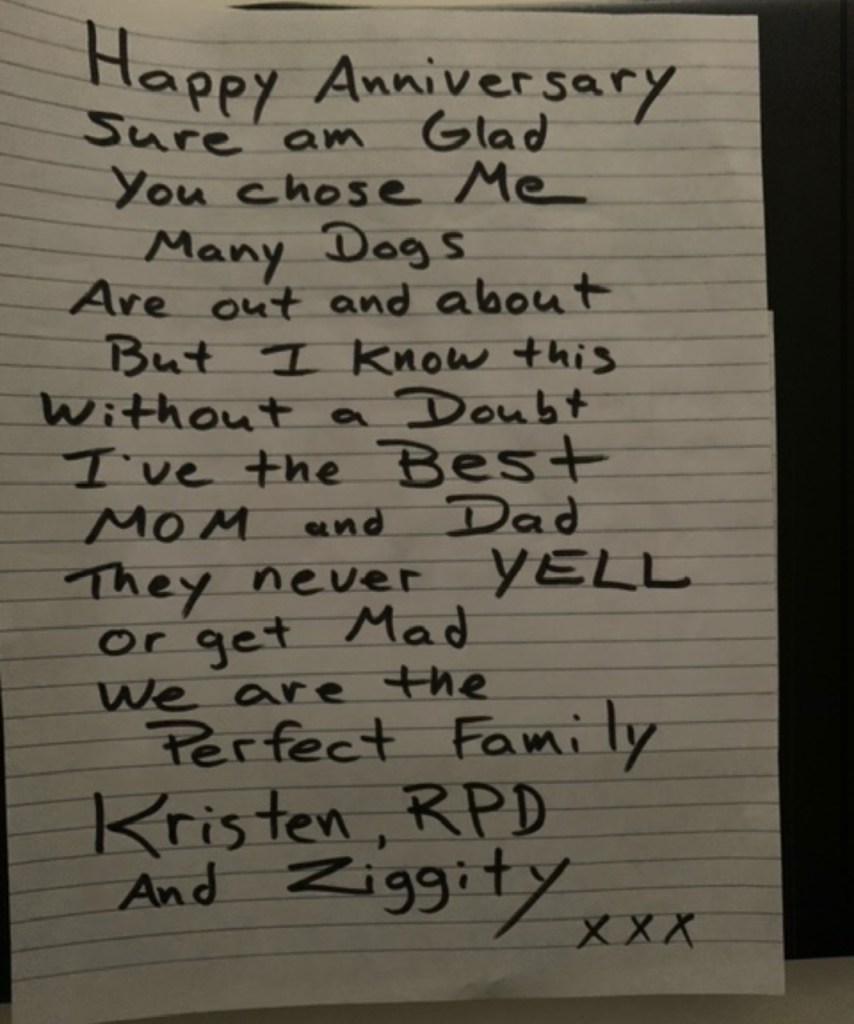 Happy Anniversary
Sure am Glad
You chose Me
Many Dogs
Are out and about
But I Know this
Without a Doubt
I've the Best
MOM and Dad
They never YELL
or get Mad
We are the
Perfect Family
Kristen, RPD
And Ziggity
xxx